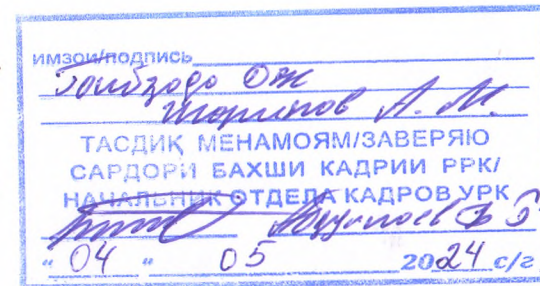 имзои/подпись
Гоибзода О.Ж
Шарипов А. М.
ТАСДИҚ МЕНАМОЯМ/ЗАВЕРЯЮ
САРДОРИ БАХШИ КАДРИИ РРК/
НАЧАЛЬНИК ОТДЕЛА КАДРОВ УРК
"04" 05 2024 с/г